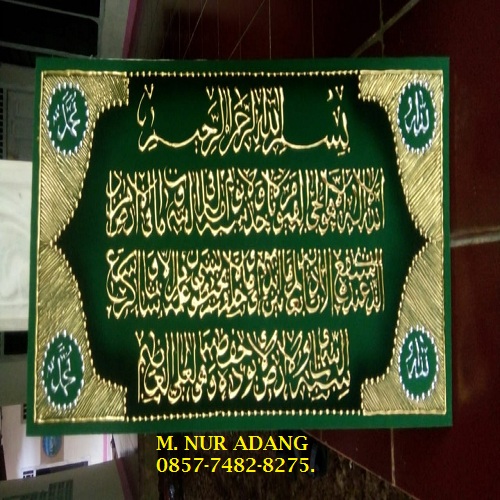 الله
محمد
بسم الله الرحمن الرحيم
الله لا اله الا هو الحي القيوم لا تأخذه سنة ولا نوم له ما في السموات وما في الارض من ذا
الذي يشفع عنده الا باذنه يعلم ما بين ايديهم وما خلفهم ولا يحيطون بشيء من علمه الا بما شاء وسع كرسيه
السموات والارض ولا يؤده حفظهما وهو العلي العظيم
الله
محمد
M. NUR ADANG
0857-7482-8275.